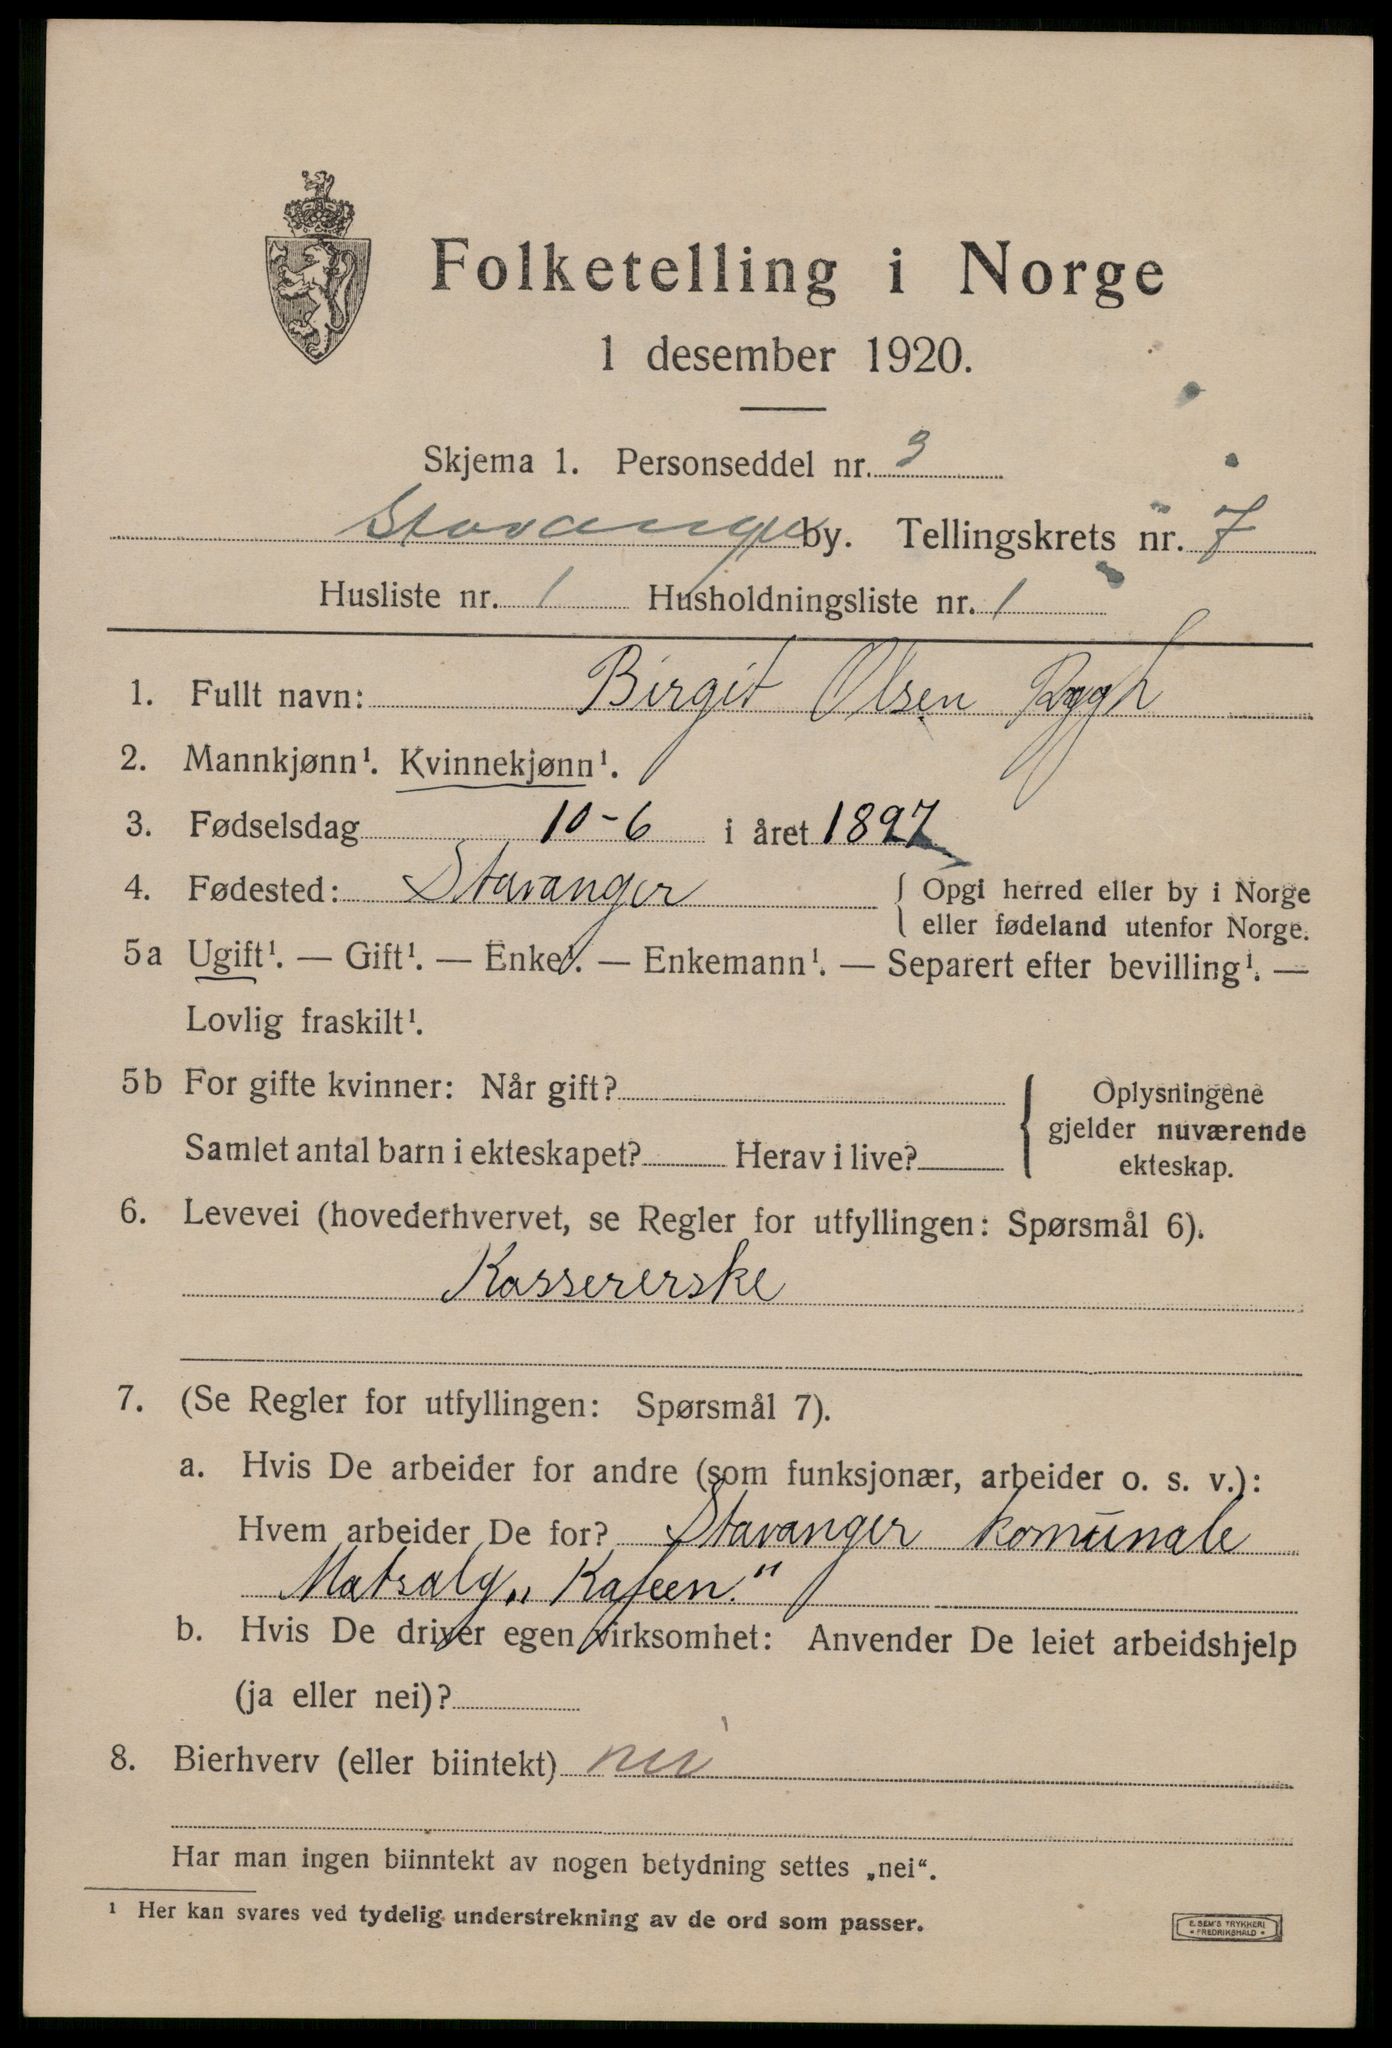 Folketelling i Norge
1 desember 1920.
Skjema 1. Personseddel nr. 3
Stavanger by. Tellingskrets nr. 7
Husliste nr. 1 Husholdningsliste nr. 1
1. Fullt navn: Birgit Olsen Rygh
2. Mannkjønn¹. Kvinnekjønn¹.
3. Fødselsdag 10-6 i året 1897
4. Fødested: Stavanger { Opgi herred eller by i Norge
eller fødeland utenfor Norge.
5a Ugift¹. — Gift¹. — Enke¹. — Enkemann¹. — Separert efter bevilling¹. —
Lovlig fraskilt¹.
5b For gifte kvinner: Når gift?
Samlet antal barn i ekteskapet? Herav i live?
{ Oplysningene
gjelder nuværende
ekteskap.
6. Levevei (hovederhvervet, se Regler for utfyllingen: Spørsmål 6).
Kassererske
7. (Se Regler for utfyllingen: Spørsmål 7).
a. Hvis De arbeider for andre (som funksjonær, arbeider o. s. v.):
Hvem arbeider De for? Stavanger komunale
Matsalg „Kafeen."
b. Hvis De driver egen virksomhet: Anvender De leiet arbeidshjelp
(ja eller nei)?
8. Bierhverv (eller biintekt) nei
Har man ingen biinntekt av nogen betydning settes „nei".
¹ Her kan svares ved tydelig understrekning av de ord som passer.
E. SEM'S TRYKKERI
* FREDRIKSHALD *